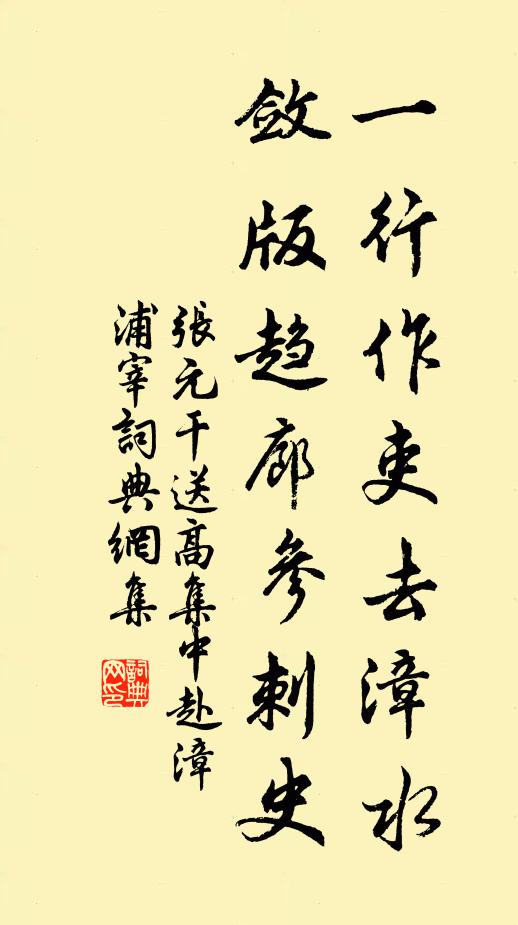 一行作吏去漳水
斂版趨廊參刺史
張元干送高集中赴漳
浦宰詞典網集
詞典
网印